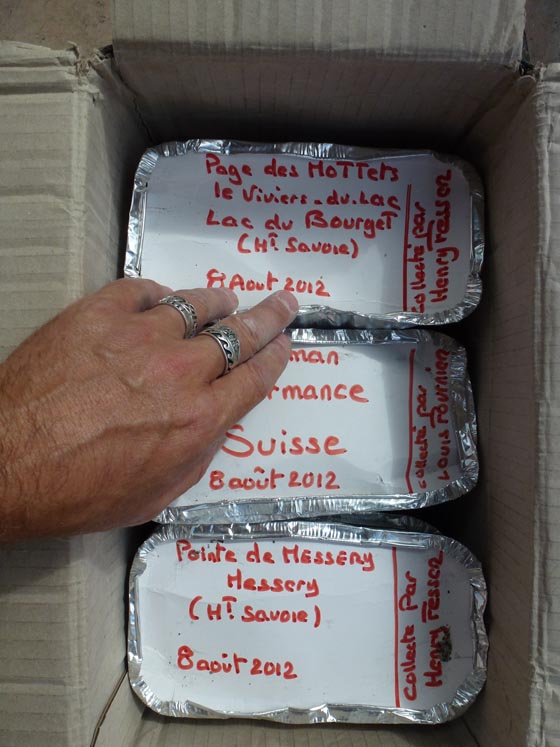 Page des MoTTets
le Viviers-du-Lac
Lac du Bourget
(Ht Savoie)
8 Aout 2012
collecté par
Henry Tesser
man
rmance
Suisse
8 août 2012
collecté par
Louis Fournier
Pointe de MESSERY
Messery
(HT Savoie)
8 août 2012
Collecte Par
Henry Tesser